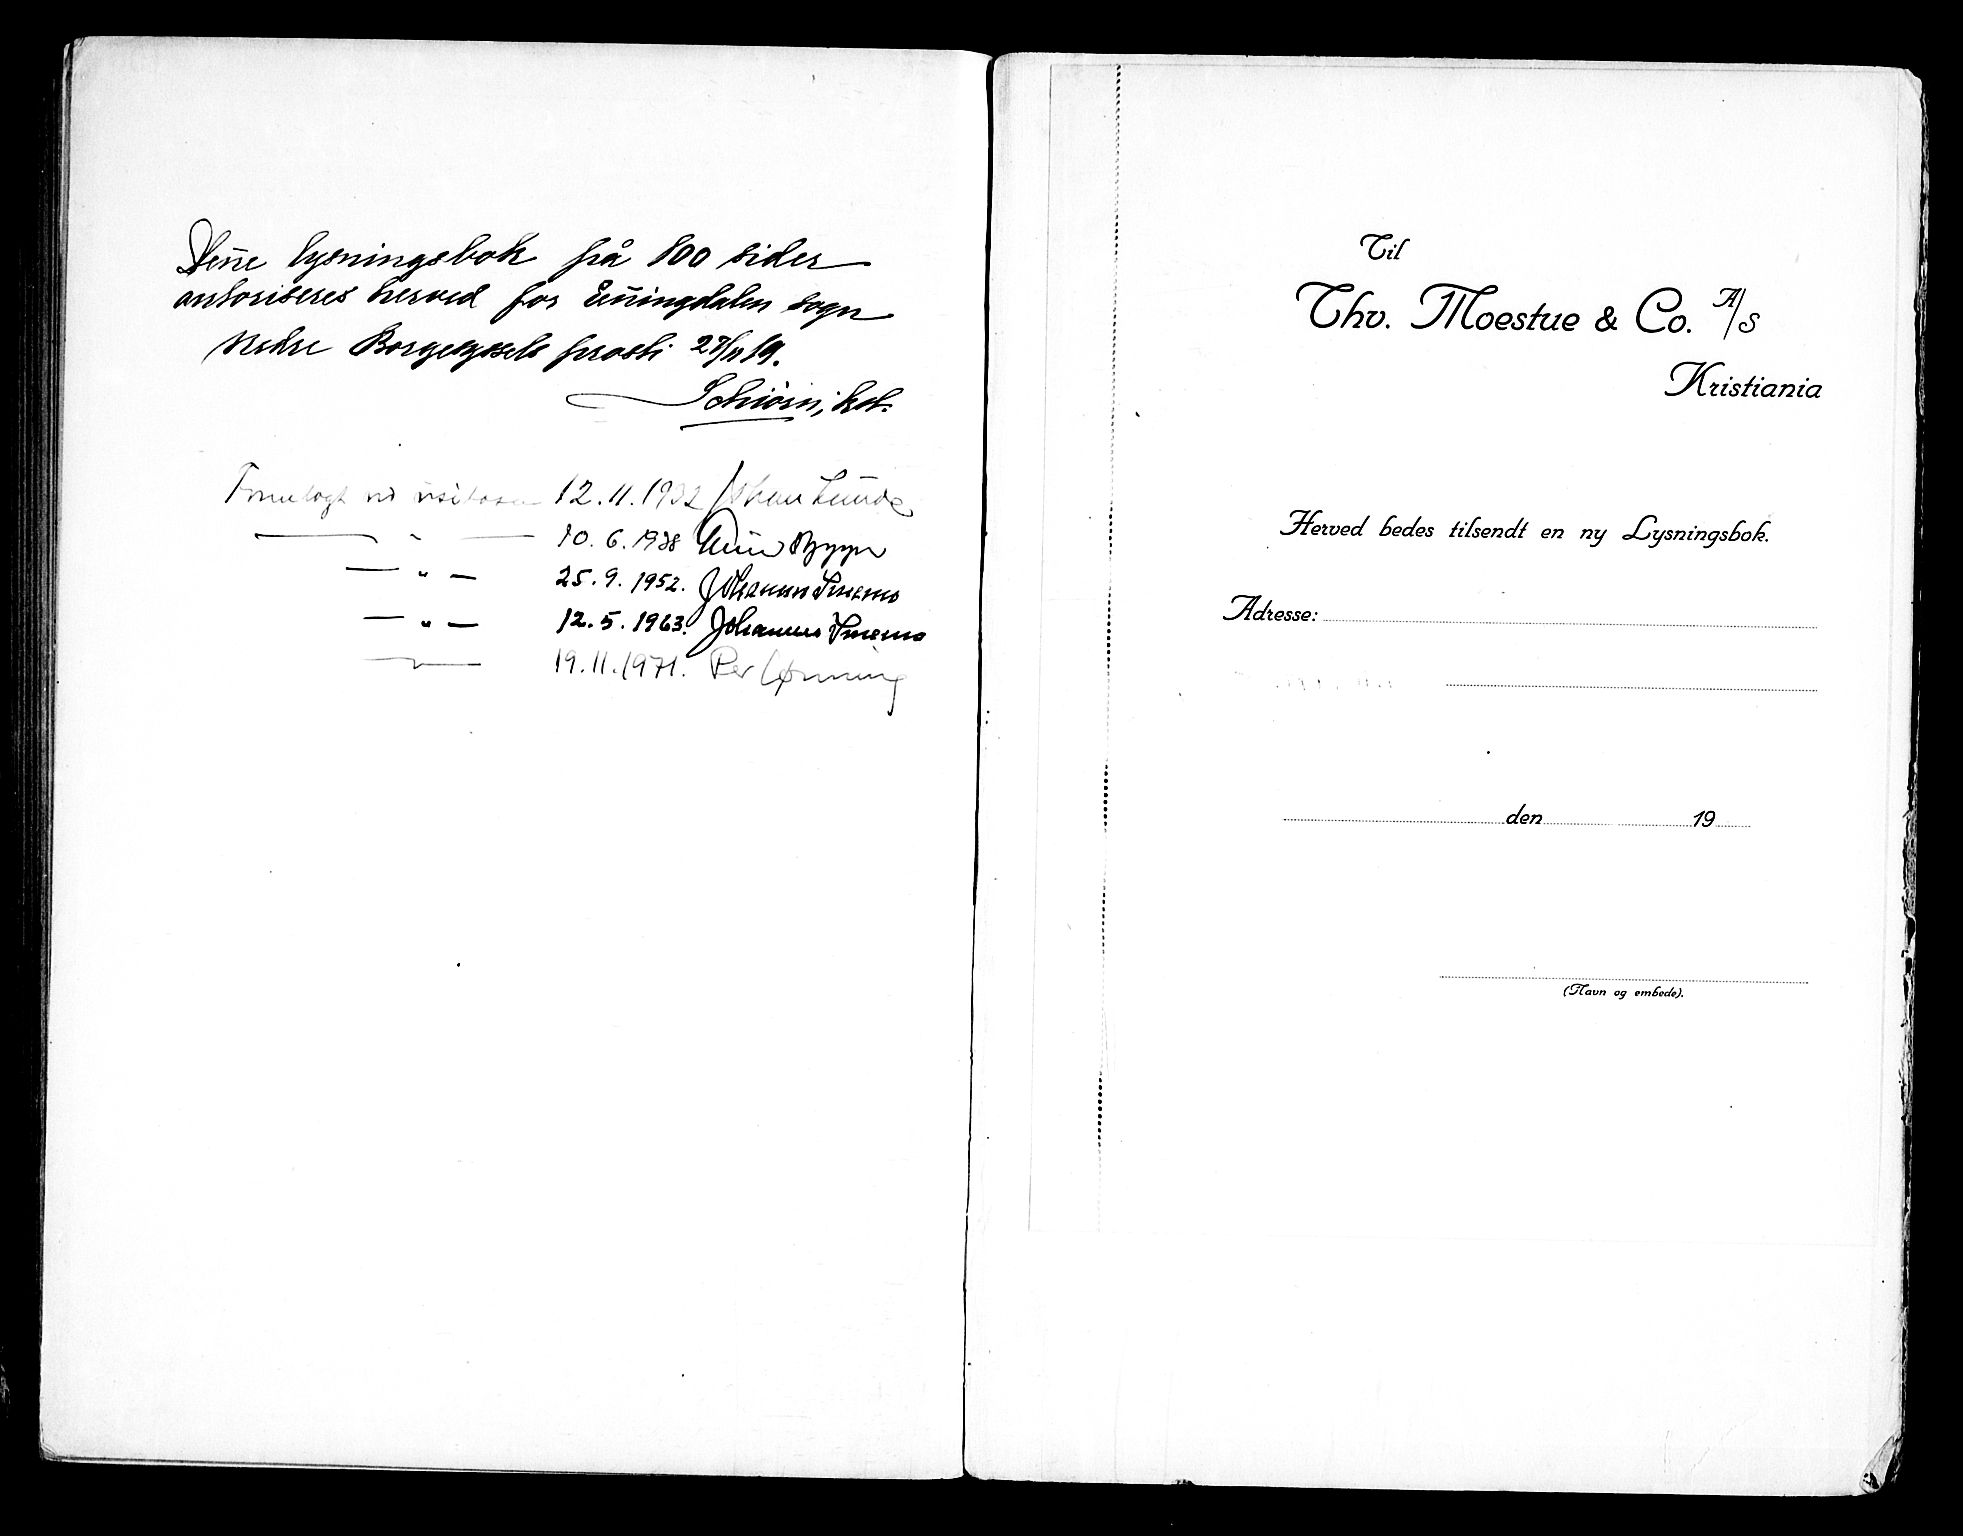 Denne lysningsbok på 100 sider
autoriseres herved for Enningdalen sogn
Nedre Borgesyssels prosti 27/11 19.
Schiørn, kst.
Fremlagt ved visitasen 12.11.1932 Johan Lunde
— " — 10.6.1938
— " — 25.9.1952. Johannes Smemo
— " — 12.5.1963. Johannes Smemo
— " — 19.11.1971. Per Lønning
Til
Thv. Moestue & Co. A/S
Kristiania
Herved bedes tilsendt en ny Lysningsbok.
Adresse:
den 19
(Navn og embede).